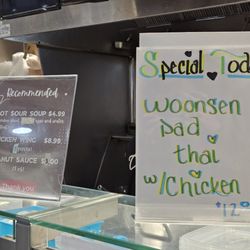 Recommended
HOT SOUR SOUP $4.99
CHICKEN WING $8.99
PEANUT SAUCE
Thank you
Special Tod
woonsen
pad
thai
w/Chicken
$12